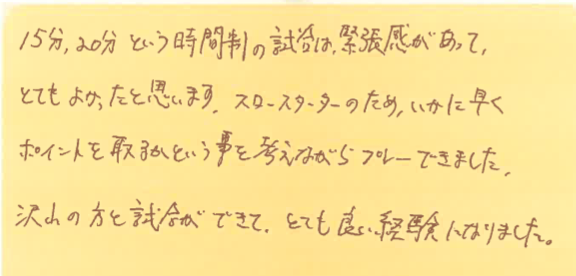 15分,20分という時間制の試合は、緊張感があって、
とてもよかったと思います。スロースターターのため、いかに早く
ポイントを取るかという事を考えながらプレーできました。
沢山の方と試合ができて、とても良い経験になりました。